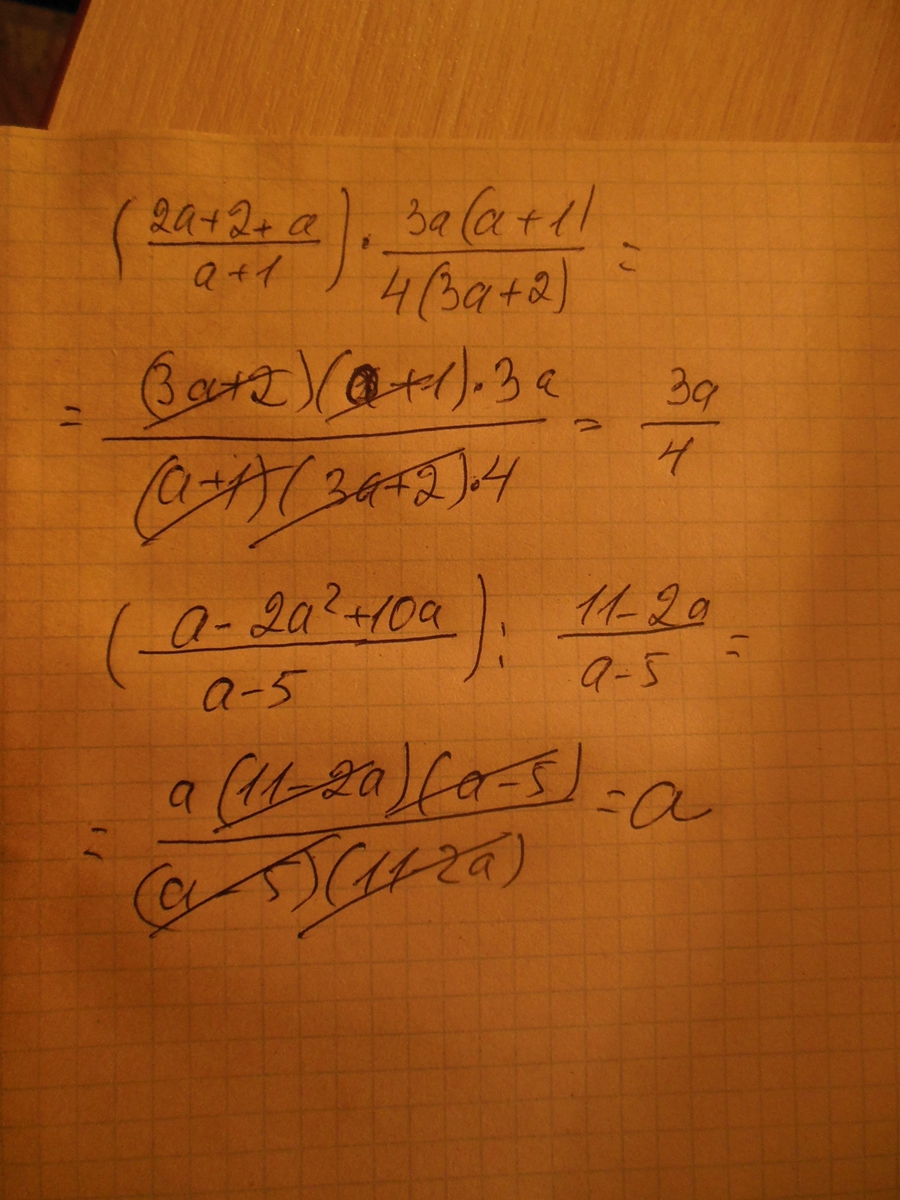 (2a+2+a / a+1) · 3a(a+1) / 4(3a+2) =
= (3a+2)(a+1)·3a / (a+1)(3a+2)·4 = 3a / 4
(a-2a²+10a / a-5) : 11-2a / a-5 =
= a(11-2a)(a-5) / (a-5)(11-2a) = a